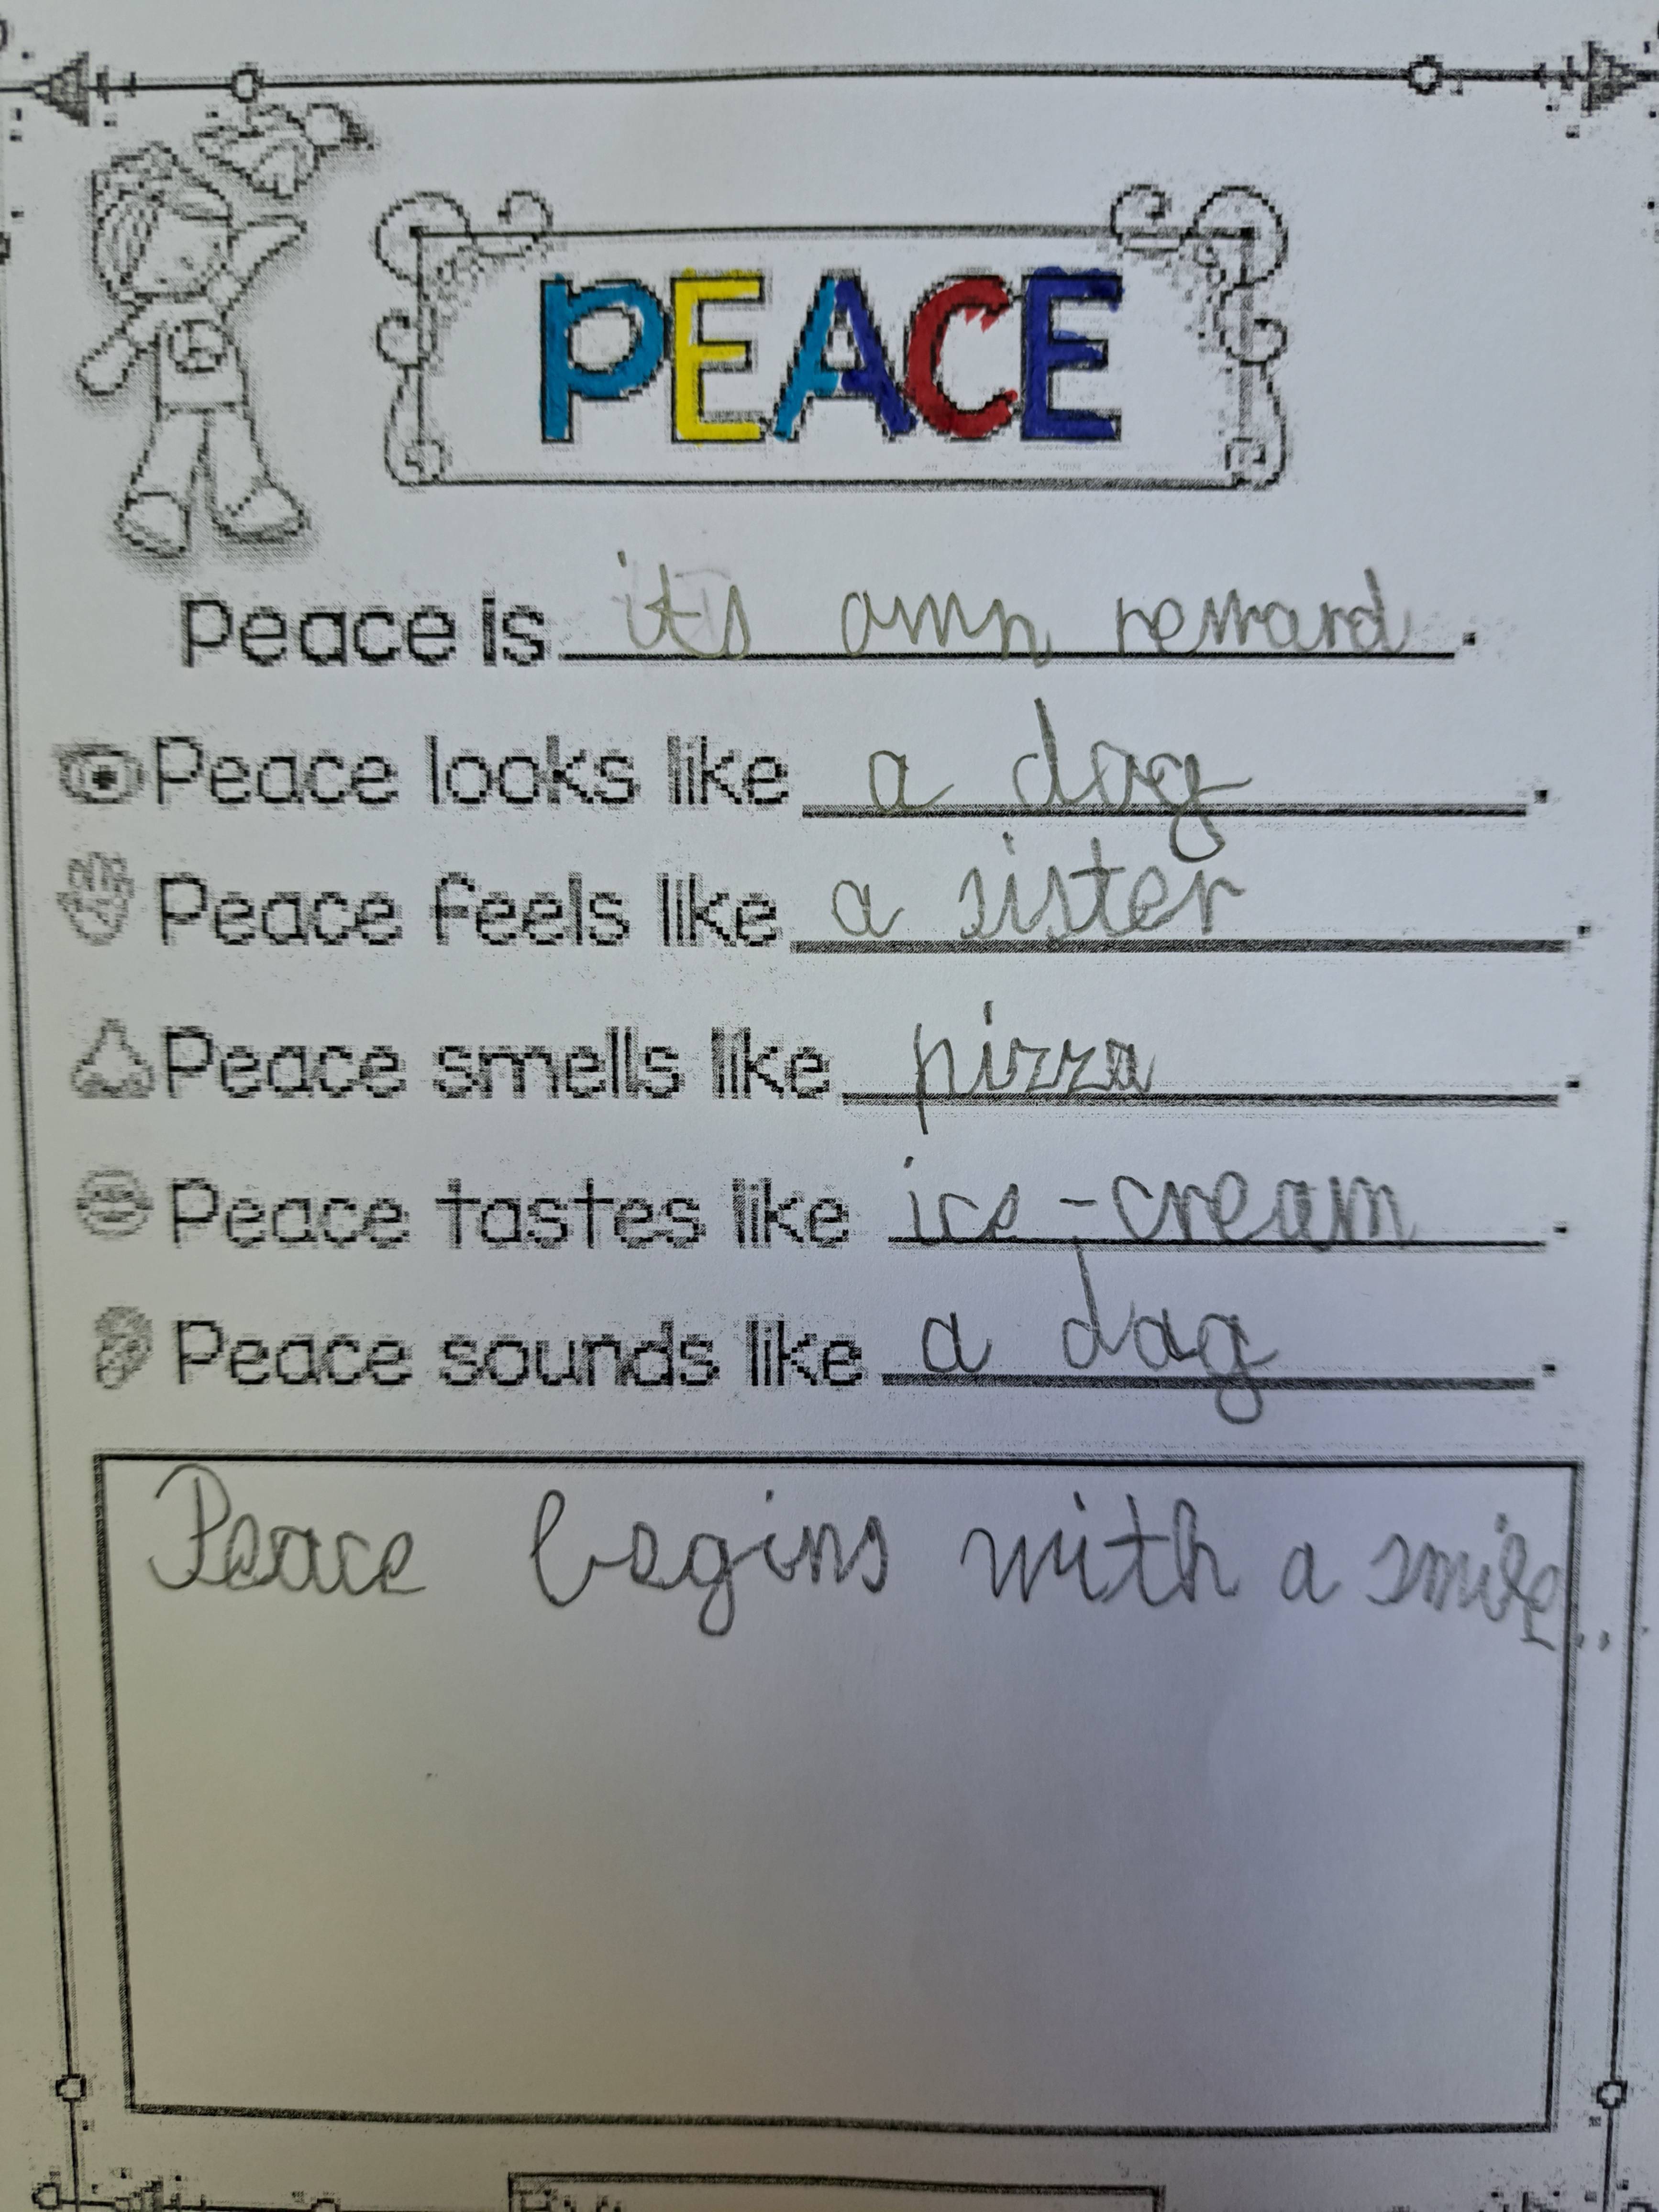 PEACE
Peace is its own reward.
Peace looks like a dog.
Peace feels like a sister.
Peace smells like pizza.
Peace tastes like ice-cream.
Peace sounds like a dog.
Peace begins with a smile...